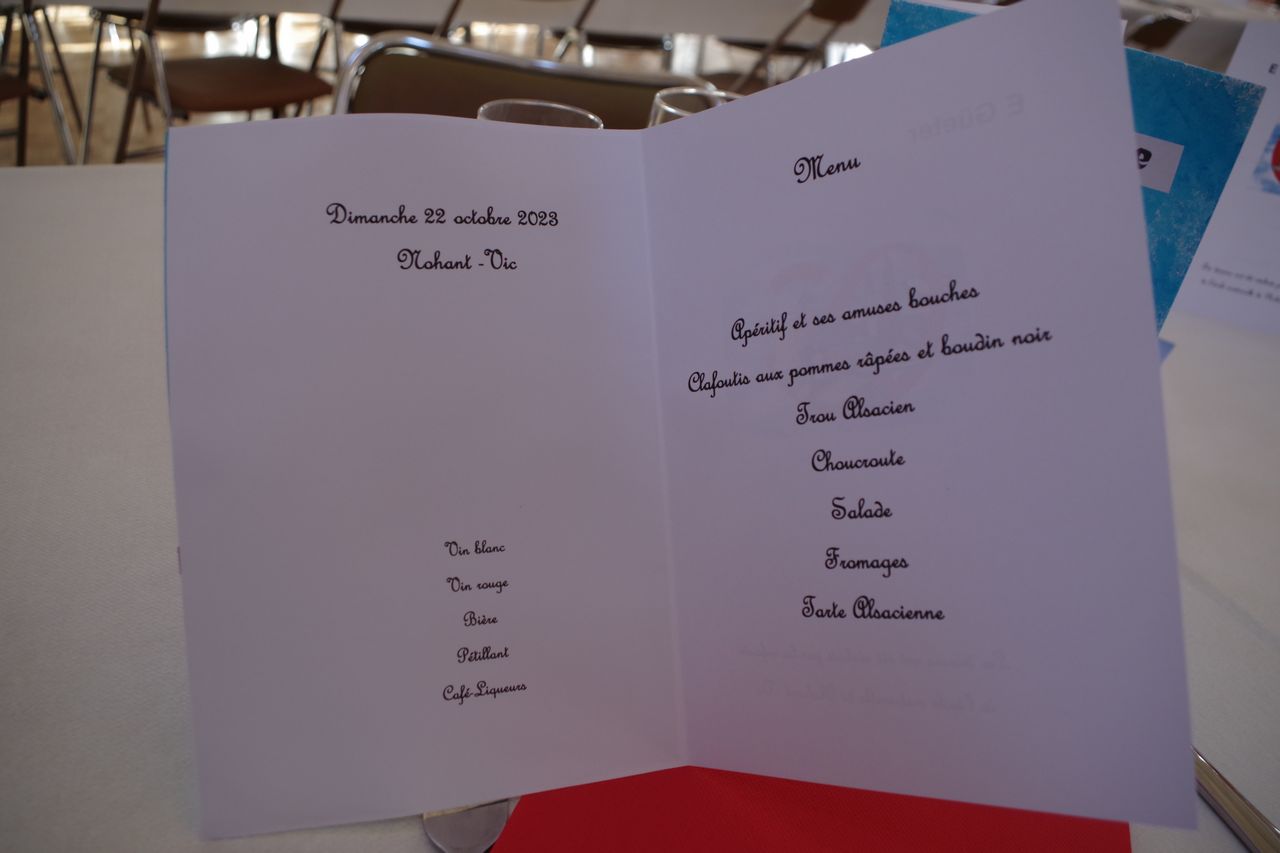 Dimanche 22 octobre 2023
Nohant - Vic
Vin blanc
Vin rouge
Bière
Pétillant
Café-Liqueurs
Menu
Apéritif et ses amuses bouches
Clafoutis aux pommes râpées et boudin noir
Trou Alsacien
Choucroute
Salade
Fromages
Tarte Alsacienne
E Güeter